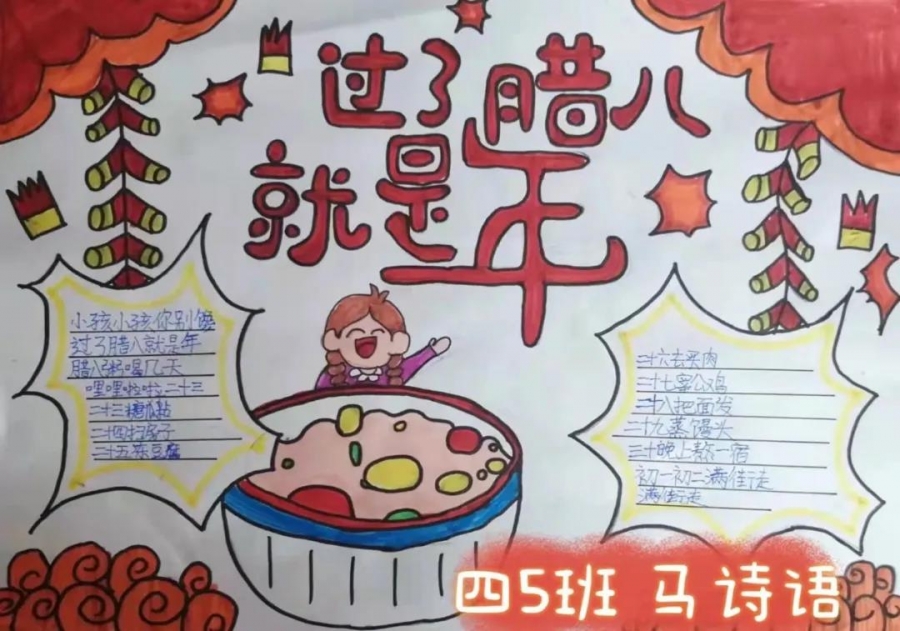 过了腊八
就是年
小孩小孩你别馋
过了腊八就是年
腊八粥喝几天
哩哩啦啦二十三
二十三糖瓜粘
二十四扫房子
二十五冻豆腐
二十六去买肉
二十七宰公鸡
二十八把面发
二十九蒸馒头
三十晚上熬一宿
初一初二满街走
满街走
四5班 马诗语